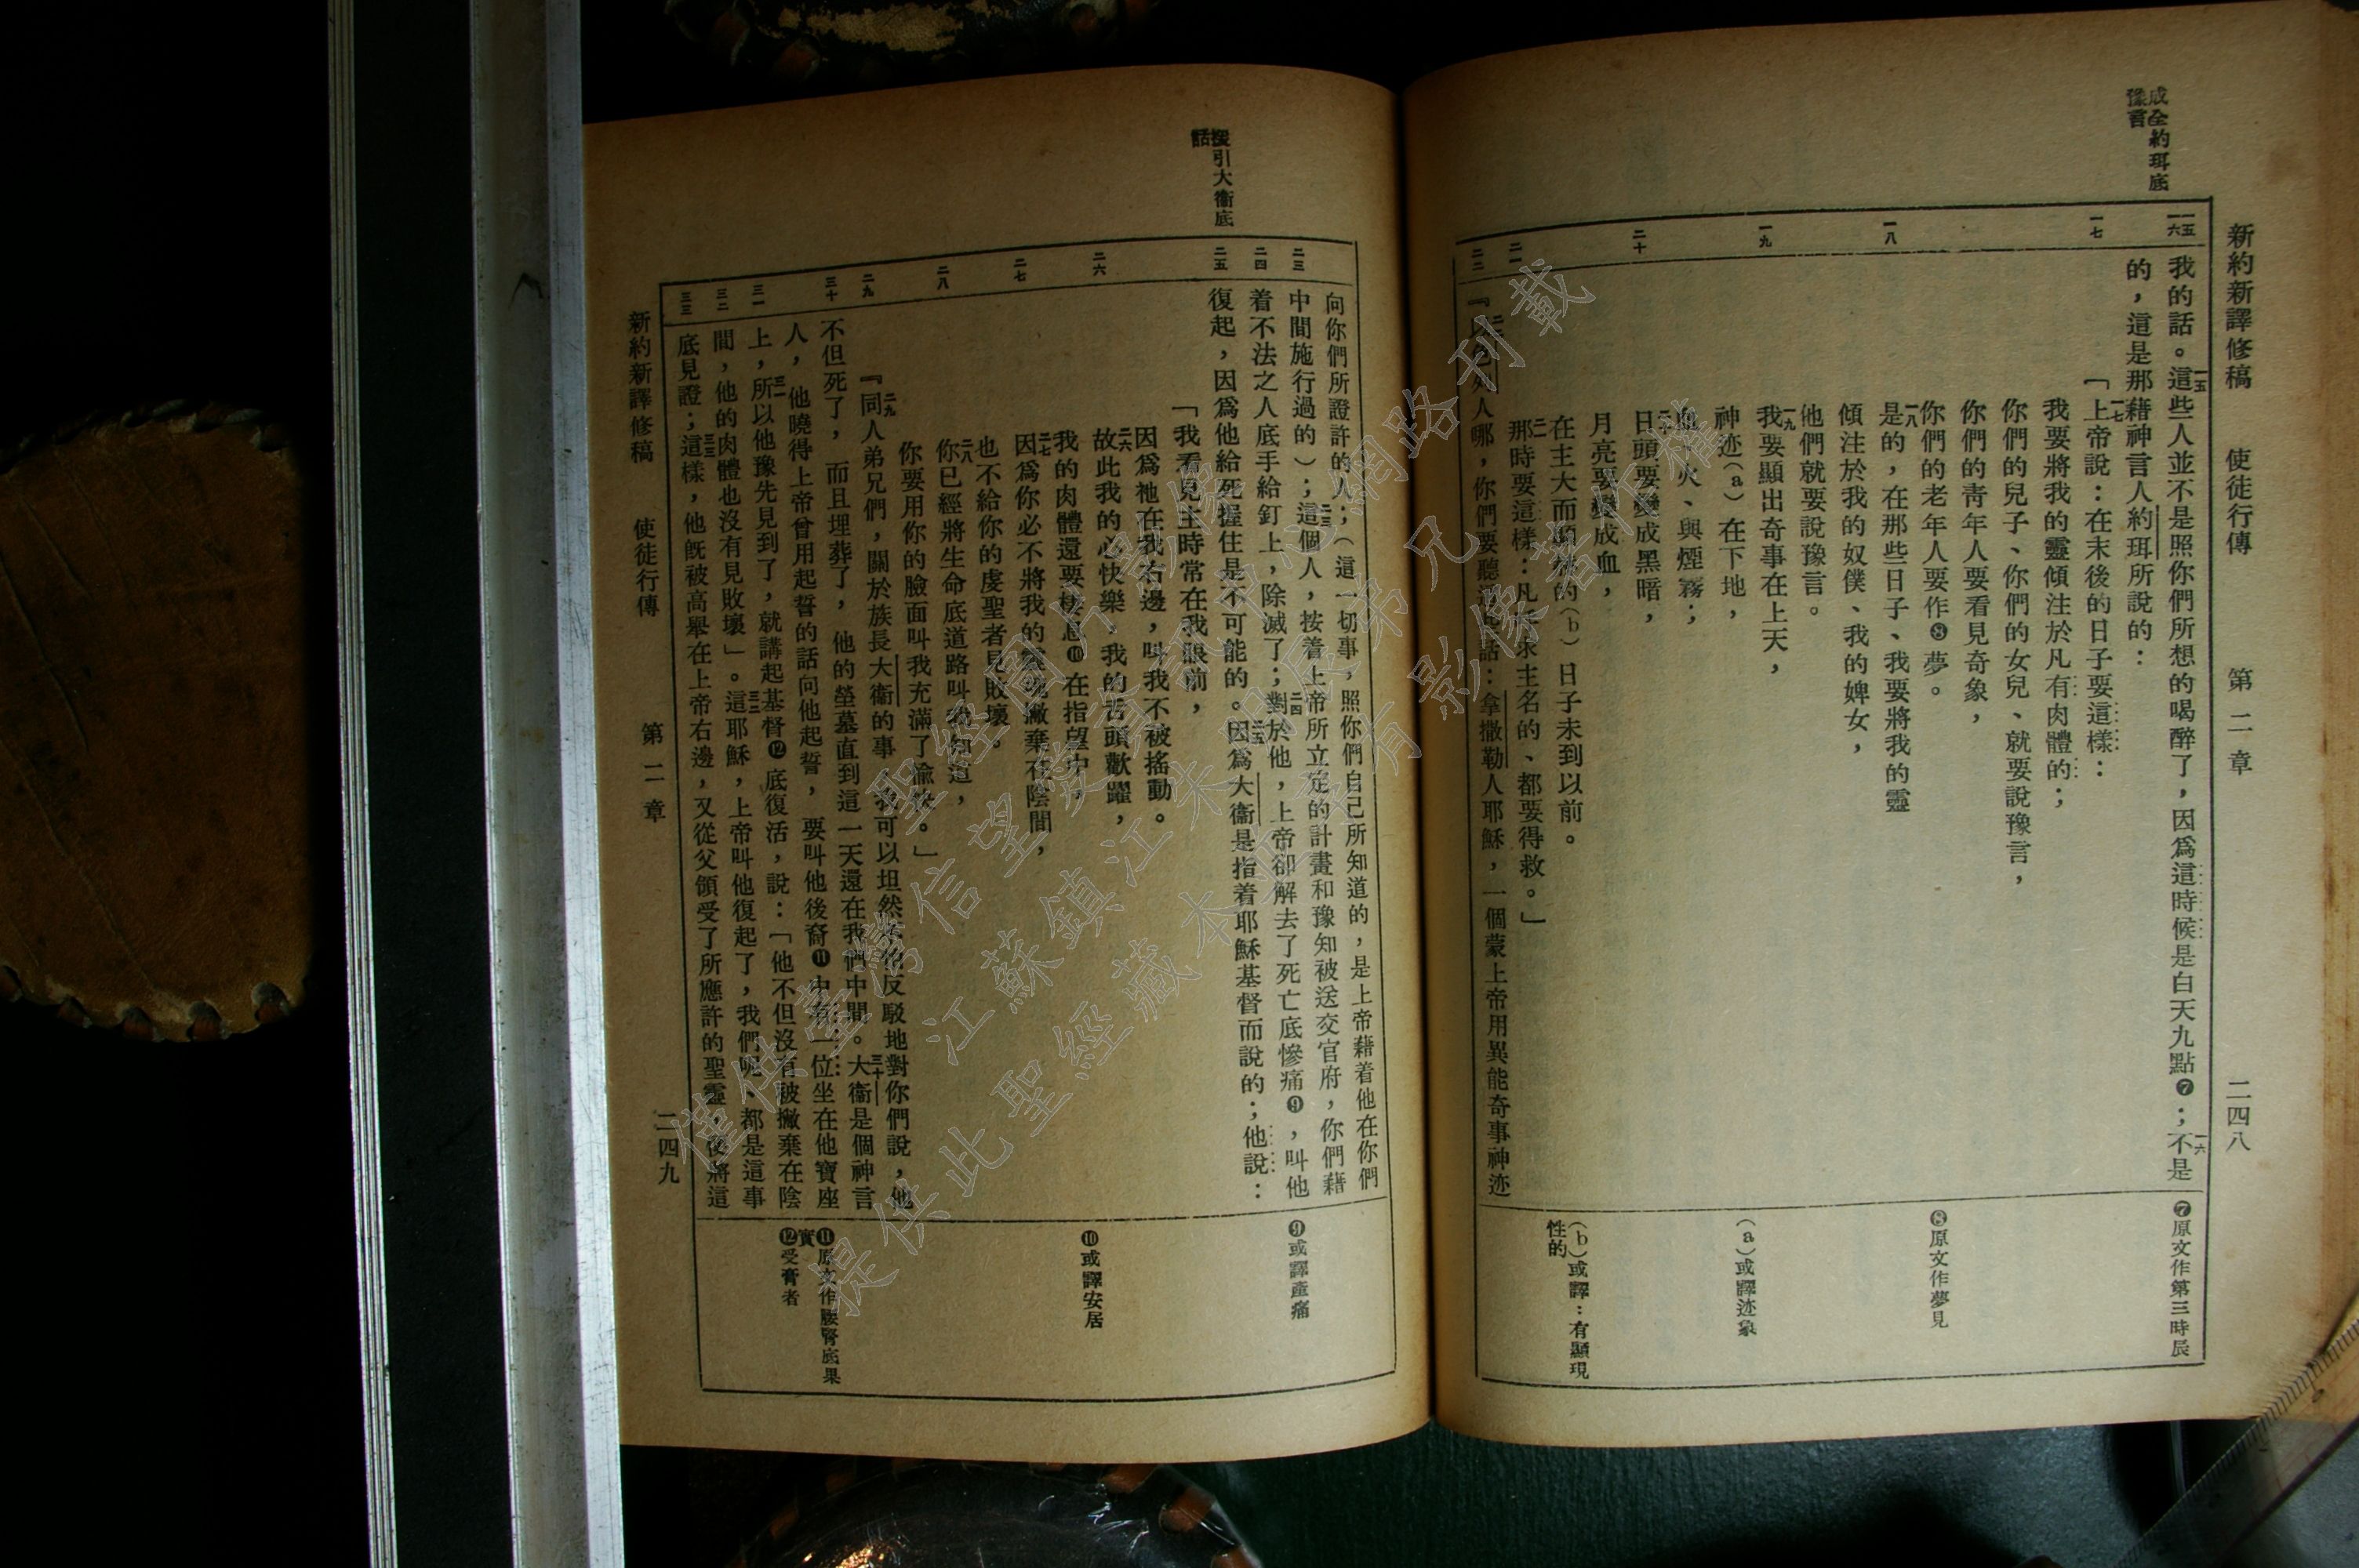 成全約珥底
豫言
新約新譯修稿 使徒行傳 第二章 二四八
一五
一六
我的話。一五這些人並不是照你們所想的喝醉了，因爲這時候是白天九點❼；一六不是
的，這是那藉神言人約珥所說的：
一七
一七「上帝說：在末後的日子要這樣：
我要將我的靈傾注於凡有肉體的；
你們的兒子、你們的女兒、就要說豫言，
你們的靑年人要看見奇象，
你們的老年人要作❽夢。
一八
一八是的，在那些日子、我要將我的靈
傾注於我的奴僕、我的婢女，
他們就要說豫言。
一九
一九我要顯出奇事在上天，
神迹（a）在下地，
血、火、與煙霧；
二十
二十日頭要變成黑暗，
月亮要變成血，
在主大而顯赫的（b）日子未到以前。
二一
二一那時要這樣：凡呼求主名的、都要得救。」
二二
二二『以色列人哪，你們要聽這些話：拿撒勒人耶穌，一個蒙上帝用異能奇事神迹
❼原文作第三時辰
❽原文作夢見
（a）或譯迹象
（b）或譯：有顯現
性的
向你們所證許的人；（這一切事，照你們自己所知道的，是上帝藉着他在你們
二三
中間施行過的）；二三這個人，按着上帝所立定的計畫和豫知被送交官府，你們藉
二四
着不法之人底手給釘上，除滅了；二四對於他，上帝卻解去了死亡底慘痛❾，叫他
援引大衞底
話
二五
復起，因爲他給死握住是不可能的。二五因爲大衞是指着耶穌基督而說的；他說：
「我看見主時常在我眼前，
因爲祂在我右邊，叫我不被搖動。
二六
二六故此我的心快樂，我的舌頭歡躍，
我的肉體還要棲息❿在指望中，
二七
二七因爲你必不將我的靈魂撇棄在陰間，
也不給你的虔聖者見敗壞。
二八
二八你已經將生命底道路叫我知道，
你要用你的臉面叫我充滿了愉快。」
二九
二九『同人弟兄們，關於族長大衞的事，我可以坦然不怕反駁地對你們說，他
三十
不但死了，而且埋葬了，他的塋墓直到這一天還在我們中間。三十大衞是個神言
人，他曉得上帝曾用起誓的話向他起誓，要叫他後裔⓫中有一位坐在他寶座
三一
上，三一所以他豫先見到了，就講起基督⓬底復活，說：「他不但沒有被撇棄在陰
三二
間，他的肉體也沒有見敗壞」。三二這耶穌，上帝叫他復起了，我們呢、都是這事
三三
底見證；三三這樣，他旣被高舉在上帝右邊，又從父領受了所應許的聖靈，後將這
❾或譯產痛
❿或譯安居
⓫原文作腰腎底果
實
⓬受膏者
新約新譯修稿 使徒行傳 第二章 二四九
僅供臺灣信望愛資訊中心網路刊載